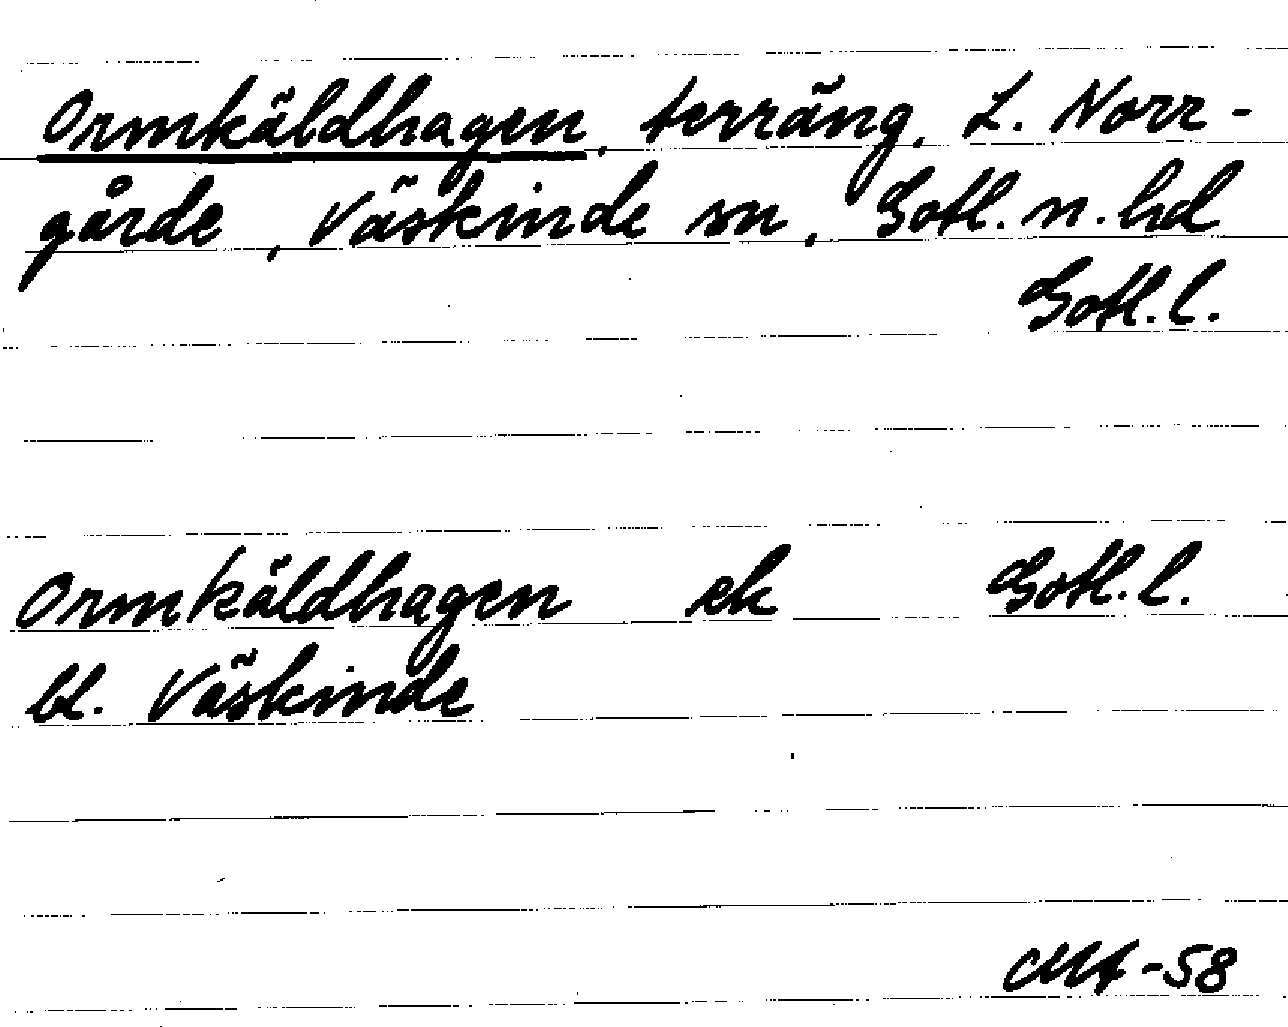 Ormkäldhagen, terräng, L. Norr-
gårde, Väskinde sn, Gotl. n. hd
Gotl. l.
Ormkäldhagen ek Gotl. l.
bl. Väskinde
-58